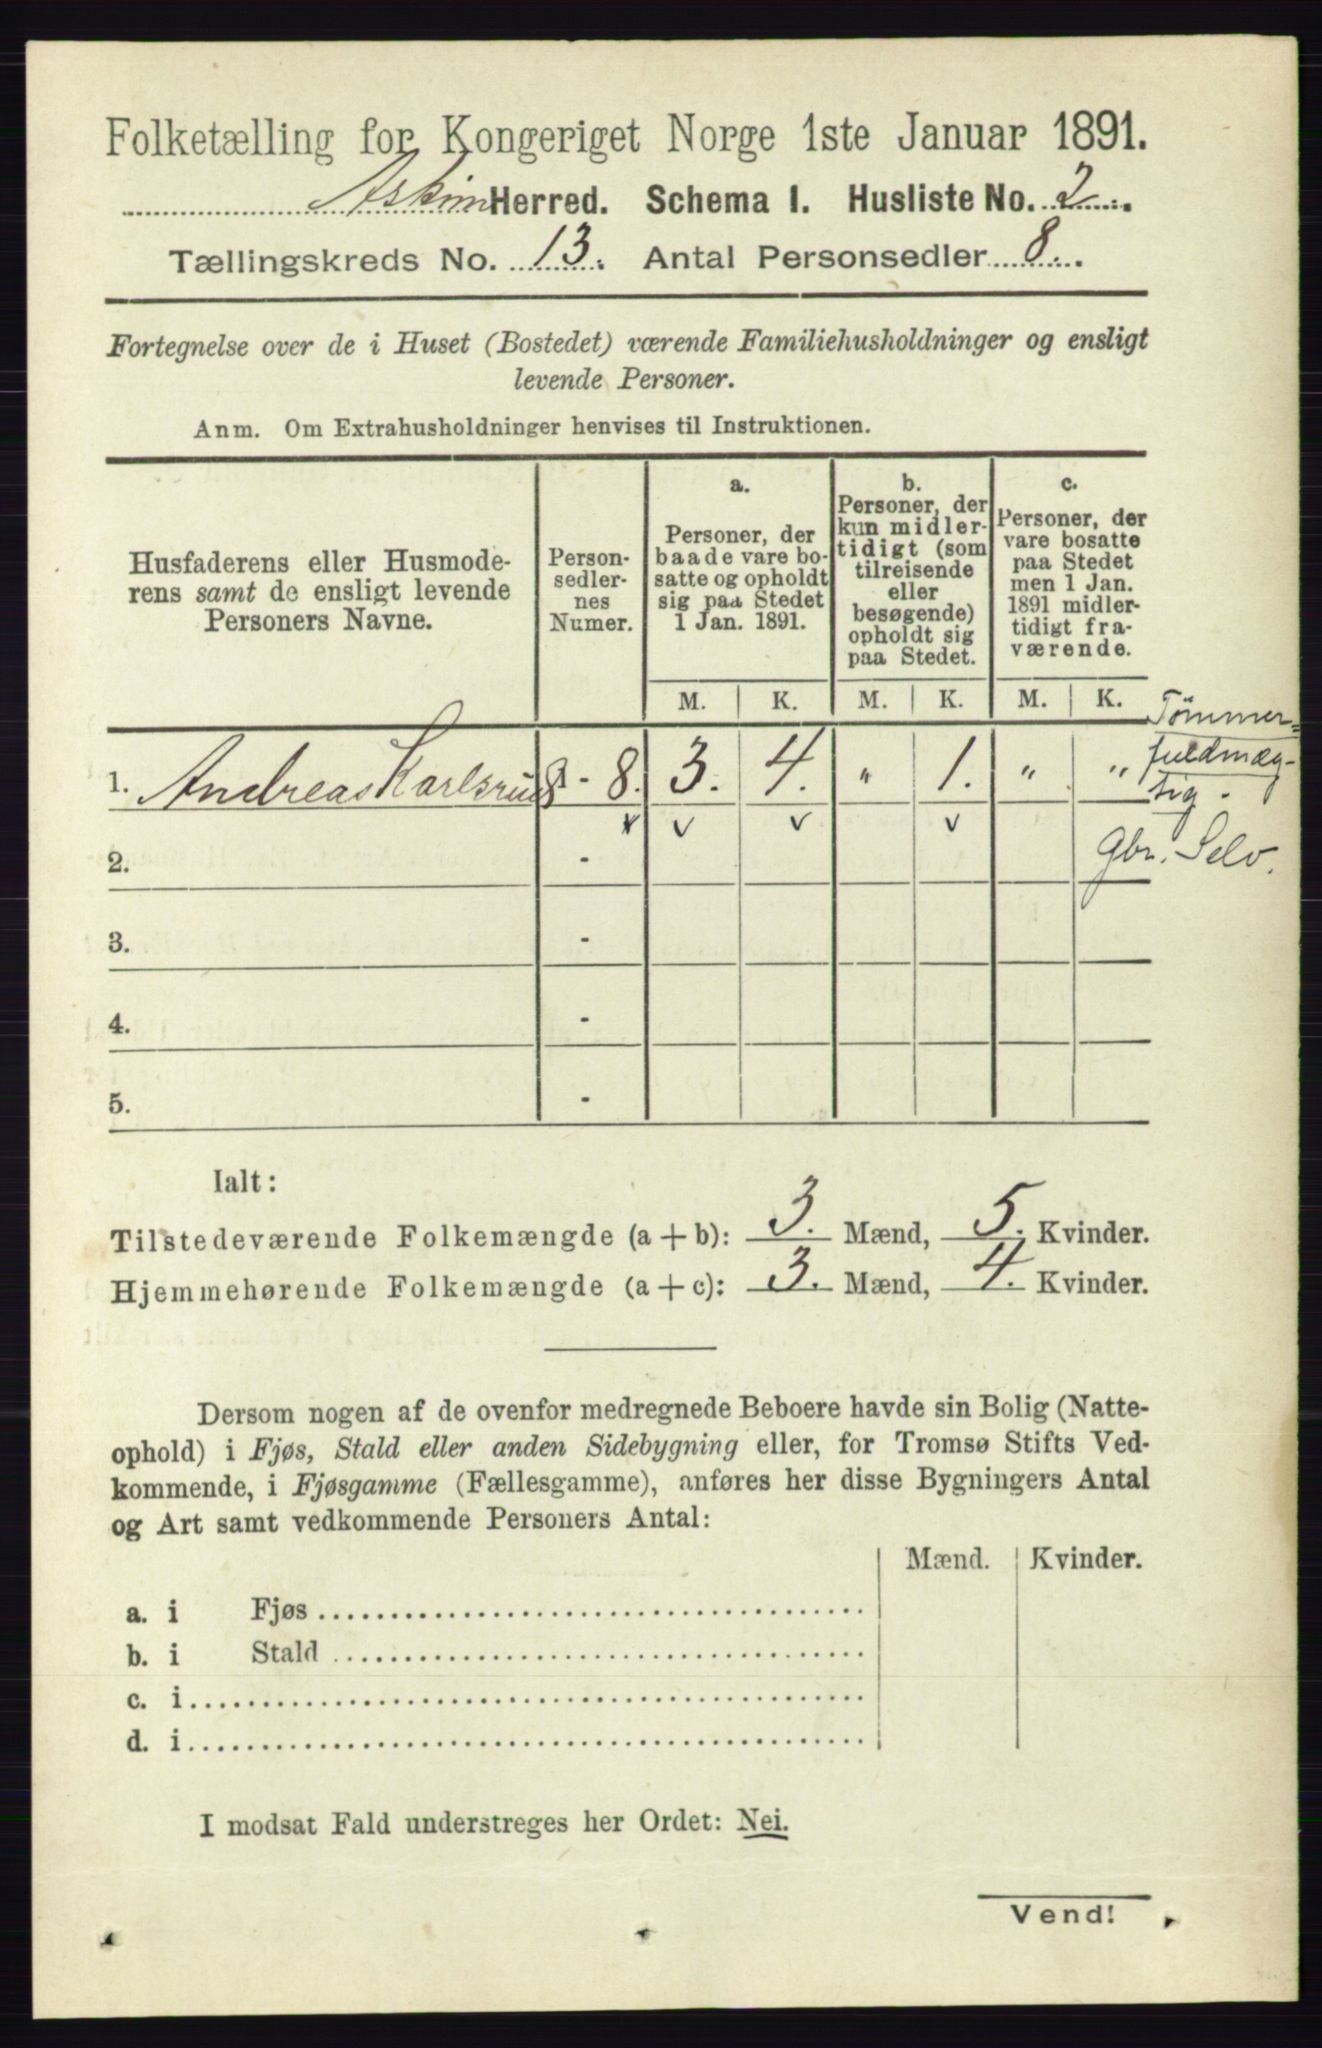 Folketælling for Kongeriget Norge 1ste Januar 1891.
Askim Herred. Schema I. Husliste No. 2.
Tællingskreds No. 13. Antal Personsedler 8.
Fortegnelse over de i Huset (Bostedet) værende Familiehusholdninger og ensligt
levende Personer.
Anm. Om Extrahusholdninger henvises til Instruktionen.
Husfaderens eller Husmode-
rens samt de ensligt levende
Personers Navne.
Person-
sedler-
nes
Numer.
a.
Personer, der
baade vare bo-
satte og opholdt
sig paa Stedet
1 Jan. 1891.
b.
Personer, der
kun midler-
tidigt (som
tilreisende
eller
besøgende)
opholdt sig
paa Stedet.
c.
Personer, der
vare bosatte
paa Stedet
men 1 Jan.
1891 midler-
tidigt fra-
værende.
M. K. M. K. M. K.
1. Andreas Karlsrud 1 - 8. 3. 4. " 1. " "
Tömmer=
fuldmæg-
tig.
Gbr. Selv.
2. -
3. -
4. -
5. -
Ialt:
Tilstedeværende Folkemængde (a + b): 3. Mænd, 5. Kvinder.
Hjemmehørende Folkemængde (a + c): 3. Mænd, 4. Kvinder.
Dersom nogen af de ovenfor medregnede Beboere havde sin Bolig (Natte-
ophold) i Fjøs, Stald eller anden Sidebygning eller, for Tromsø Stifts Ved-
kommende, i Fjøsgamme (Fællesgamme), anføres her disse Bygningers Antal
og Art samt vedkommende Personers Antal:
Mænd. Kvinder.
a. i Fjøs
b. i Stald
c. i
d. i
I modsat Fald understreges her Ordet: Nei.
Vend!